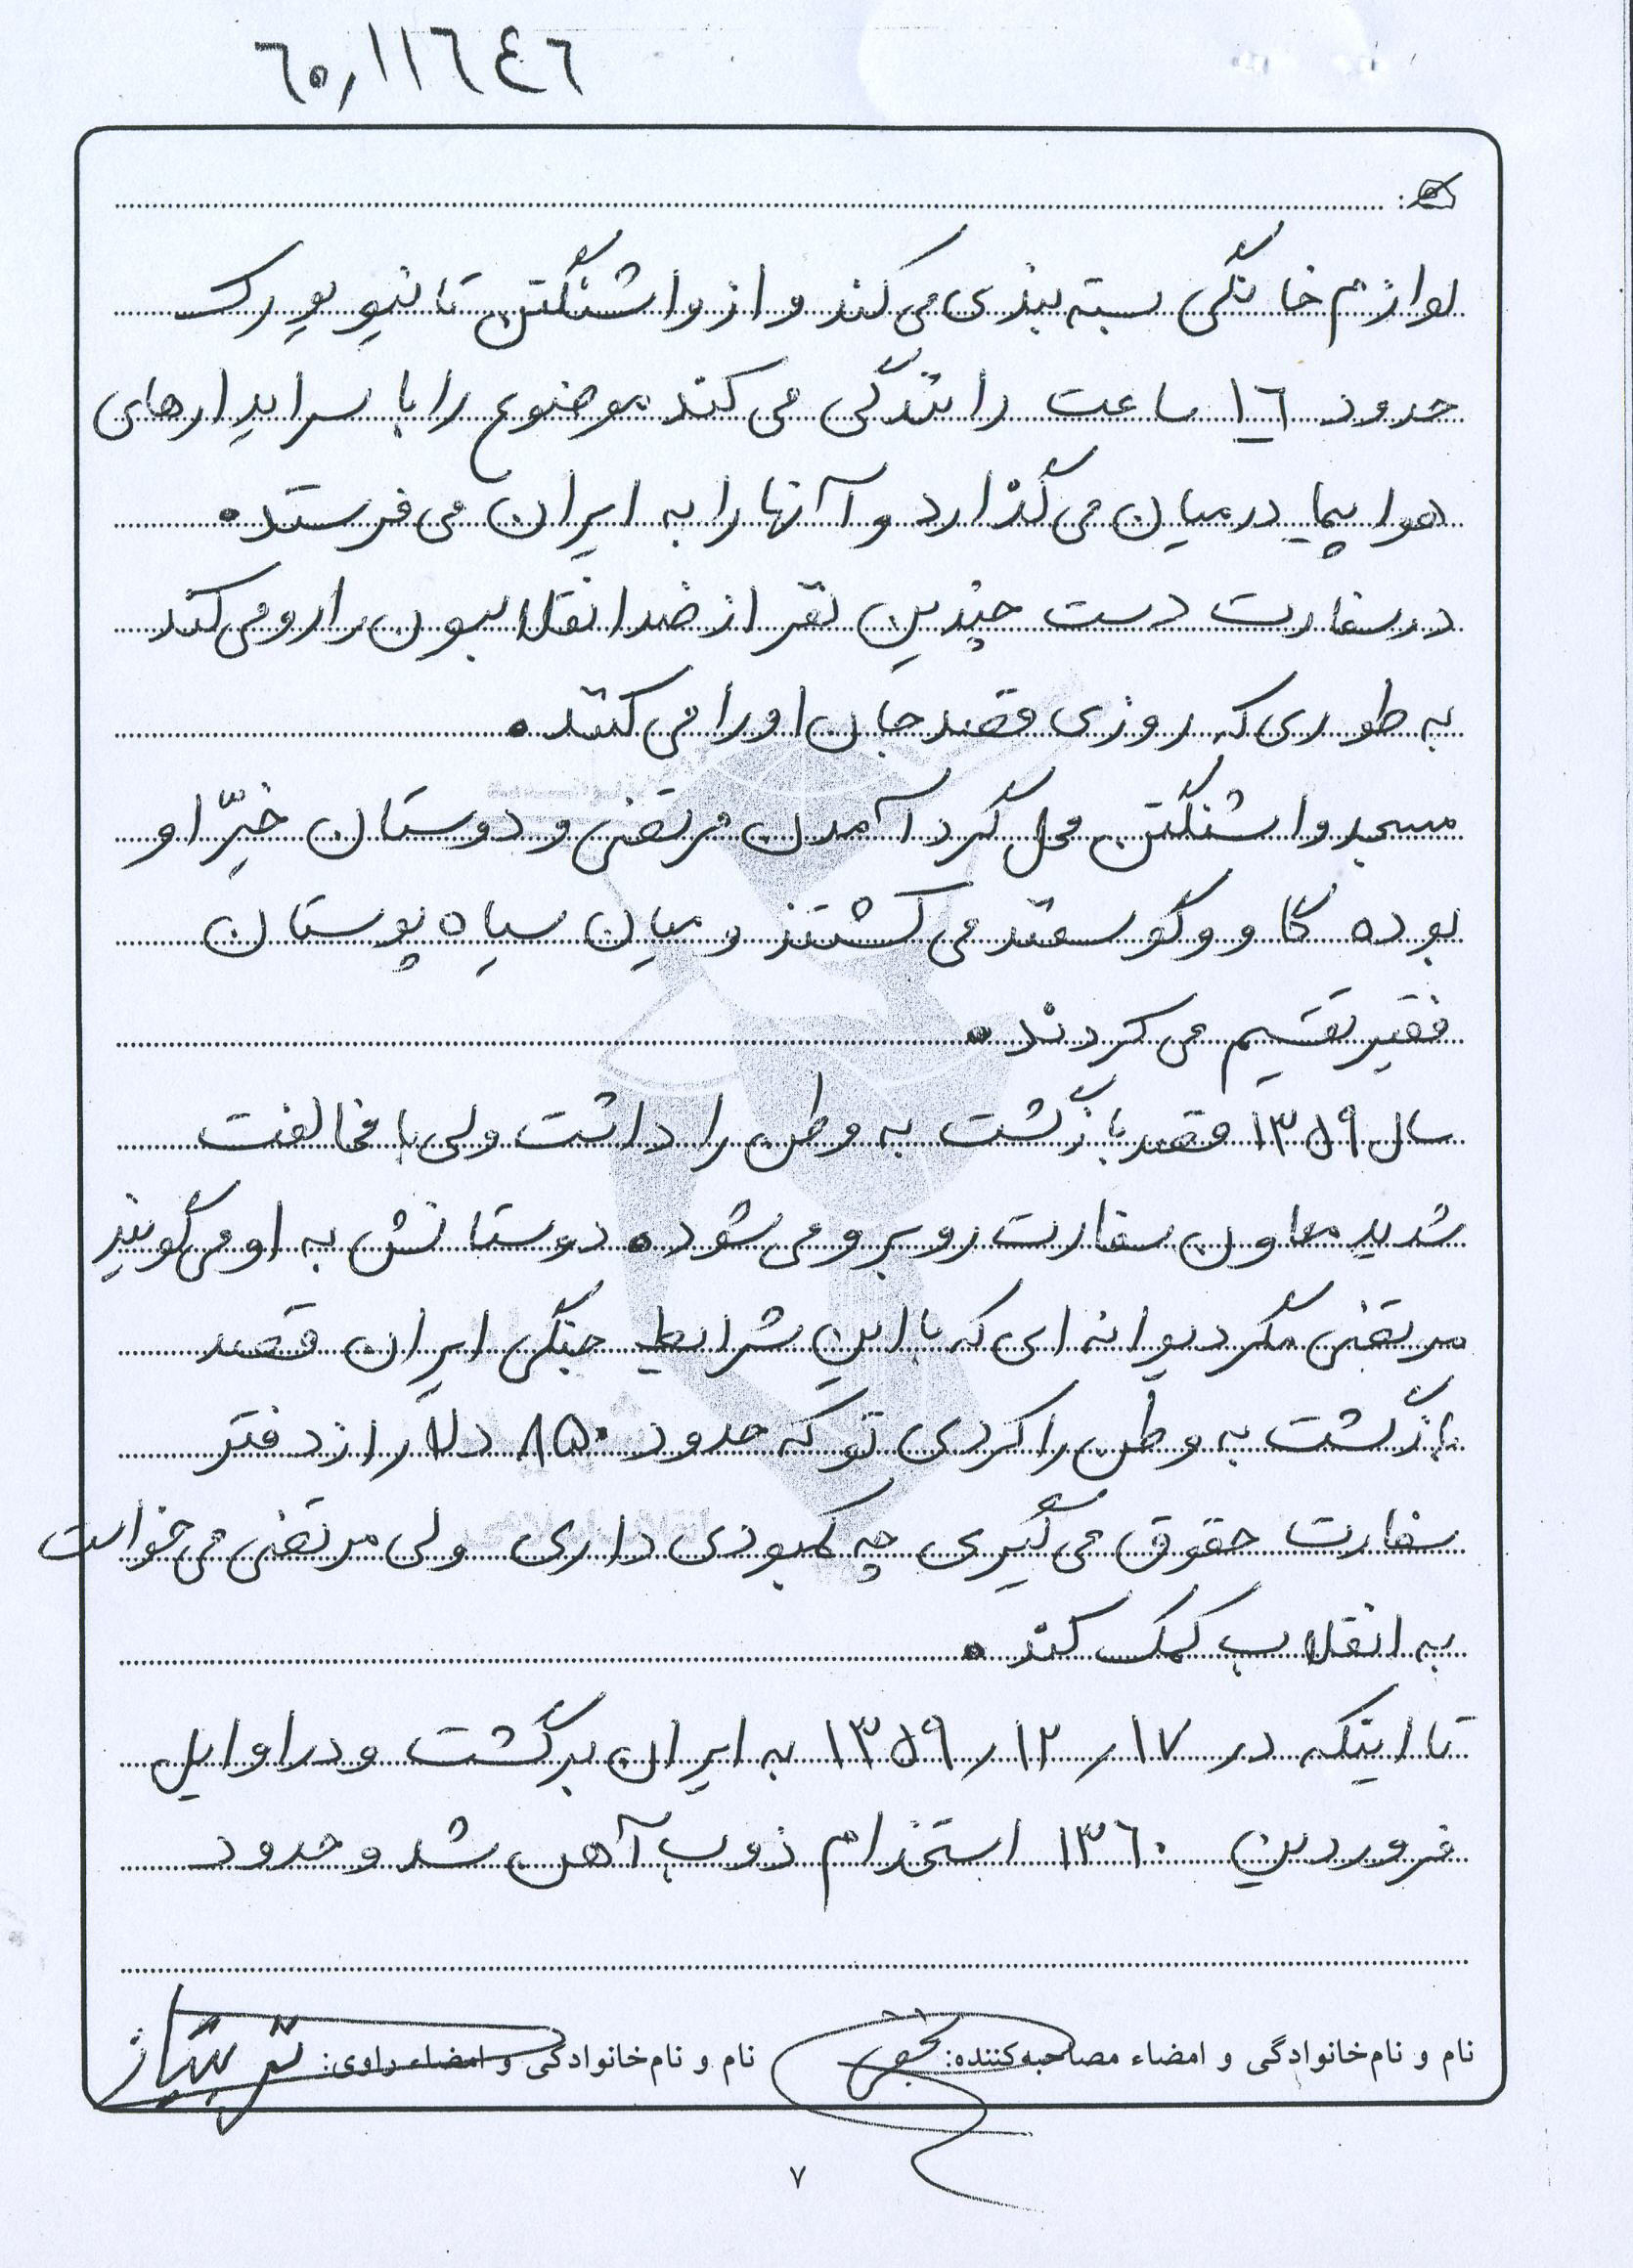 ٦٠/١١٦٤٦
لوازم خانگی بسته بندی می کند و از واشنگتن تا نیویورک
حدود ١٦ ساعت رانندگی می کند موضوع را با سرایدارهای
هواپیما درمیان می گذارد و آنها را به ایران می فرستد.
در سفارت دست چندین نفر از ضد انقلابیون را رو می کند
به طوری که روزی قصد جان او را می کنند.
مسجد واشنگتن محل گرد آمدن مرتضی و دوستان خیّر او
بوده گاو و گوسفند می کشتند و میان سیاه پوستان
فقیر تقسیم می کردند.
سال ١٣٥٩ قصد بازگشت به وطن را داشت ولی با مخالفت
شدید معاون سفارت روبرو می شود. دوستانش به او می گویند
مرتضی مگر دیوانه ای که با این شرایط جنگی ایران قصد
بازگشت به وطن را کردی تو که حدود ٨٥٠ دلار از دفتر
سفارت حقوق می گیری چه کمبودی داری ولی مرتضی می خواست
به انقلاب کمک کند.
تا اینکه در ١٧/١٢/١٣٥٩ به ایران برگشت و در اوایل
فروردین ١٣٦٠ استخدام ذوب آهن شد و حدود
نام و نام‌خانوادگی و امضاء مصاحبه‌کننده: نام و نام‌خانوادگی و امضاء راوی:
٧